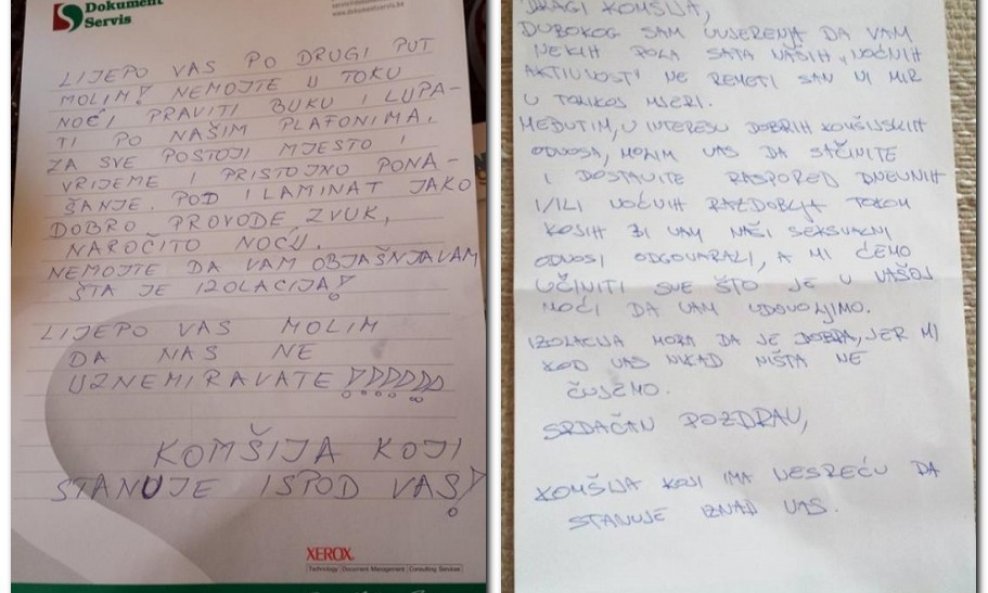 Dokument
Servis
www.dokumentservis.ba
LIJEPO VAS PO DRUGI PUT
MOLIM! NEMOJTE U TOKU
NOĆI PRAVITI BUKU I LUPA-
TI PO NAŠIM PLAFONIMA.
ZA SVE POSTOJI MJESTO I
VRIJEME I PRISTOJNO PONA-
ŠANJE. POD I LAMINAT JAKO
DOBRO PROVODE ZVUK,
NAROČITO NOĆU.
NEMOJTE DA VAM OBJAŠNJAVAM
ŠTA JE IZOLACIJA!
LIJEPO VAS MOLIM
DA NAS NE
UZNEMIRAVATE!!!!!!
KOMŠIJA KOJI
STANUJE ISPOD VAS!
XEROX.
Technology Document Management Consulting Services
DRAGI KOMŠIJA,
DUBOKOG SAM UVJERENJA DA VAM
NEKIH POLA SATA NAŠIH "NOĆNIH
AKTIVNOSTI" NE REMETI SAN NI MIR
U TOLIKOJ MJERI.
MEĐUTIM, U INTERESU DOBRIH KOMŠIJSKIH
ODNOSA, MOLIM VAS DA SAČINITE
I DOSTAVITE RASPORED DNEVNIH
I/ILI NOĆNIH RAZDOBLJA TOKOM
KOJIH BI VAM NAŠI SEKSUALNI
ODNOSI ODGOVARALI, A MI ĆEMO
UČINITI SVE ŠTO JE U VAŠOJ
MOĆI DA VAM UDOVOLJIMO.
IZOLACIJA MORA DA JE DOBRA, JER MI
KOD VAS NIKAD NIŠTA NE
ČUJEMO.
SRDAČAN POZDRAV,
KOMŠIJA KOJI IMA NESREĆU DA
STANUJE IZNAD VAS.